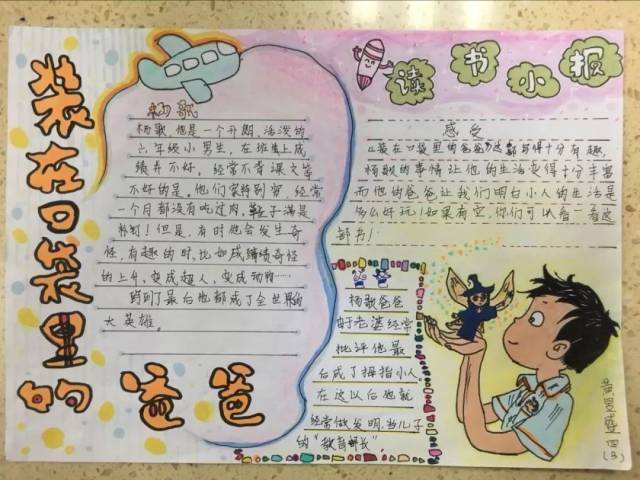 装在口袋里的爸爸
读书小报
杨歌
杨歌,他是一个开朗,活泼的
六年级小男生,在班集上成
绩并不好,经常不背课文等
不好的是。他们家特别穷,经常
一个月都没有吃过肉,鞋子满是
补丁!但是,有时他会发生奇
怪,有趣的时,比如成绩奇怪
的上升,变成超人,变成动物……
到了最后他都成了全世界的
大英雄。
感受
《装在口袋里的爸爸》这本书写得十分有趣,
杨歌的事情让他的生活变得十分丰富
而他的爸爸让我们明白小人的生活是
多么好玩!如果有空,你们可以看一看这
部书!
杨歌爸爸
时老婆经常
批评他最
后成了拇指小人
在这以后他就
经常做发明,当儿子
的“教育部长”。
四(3)